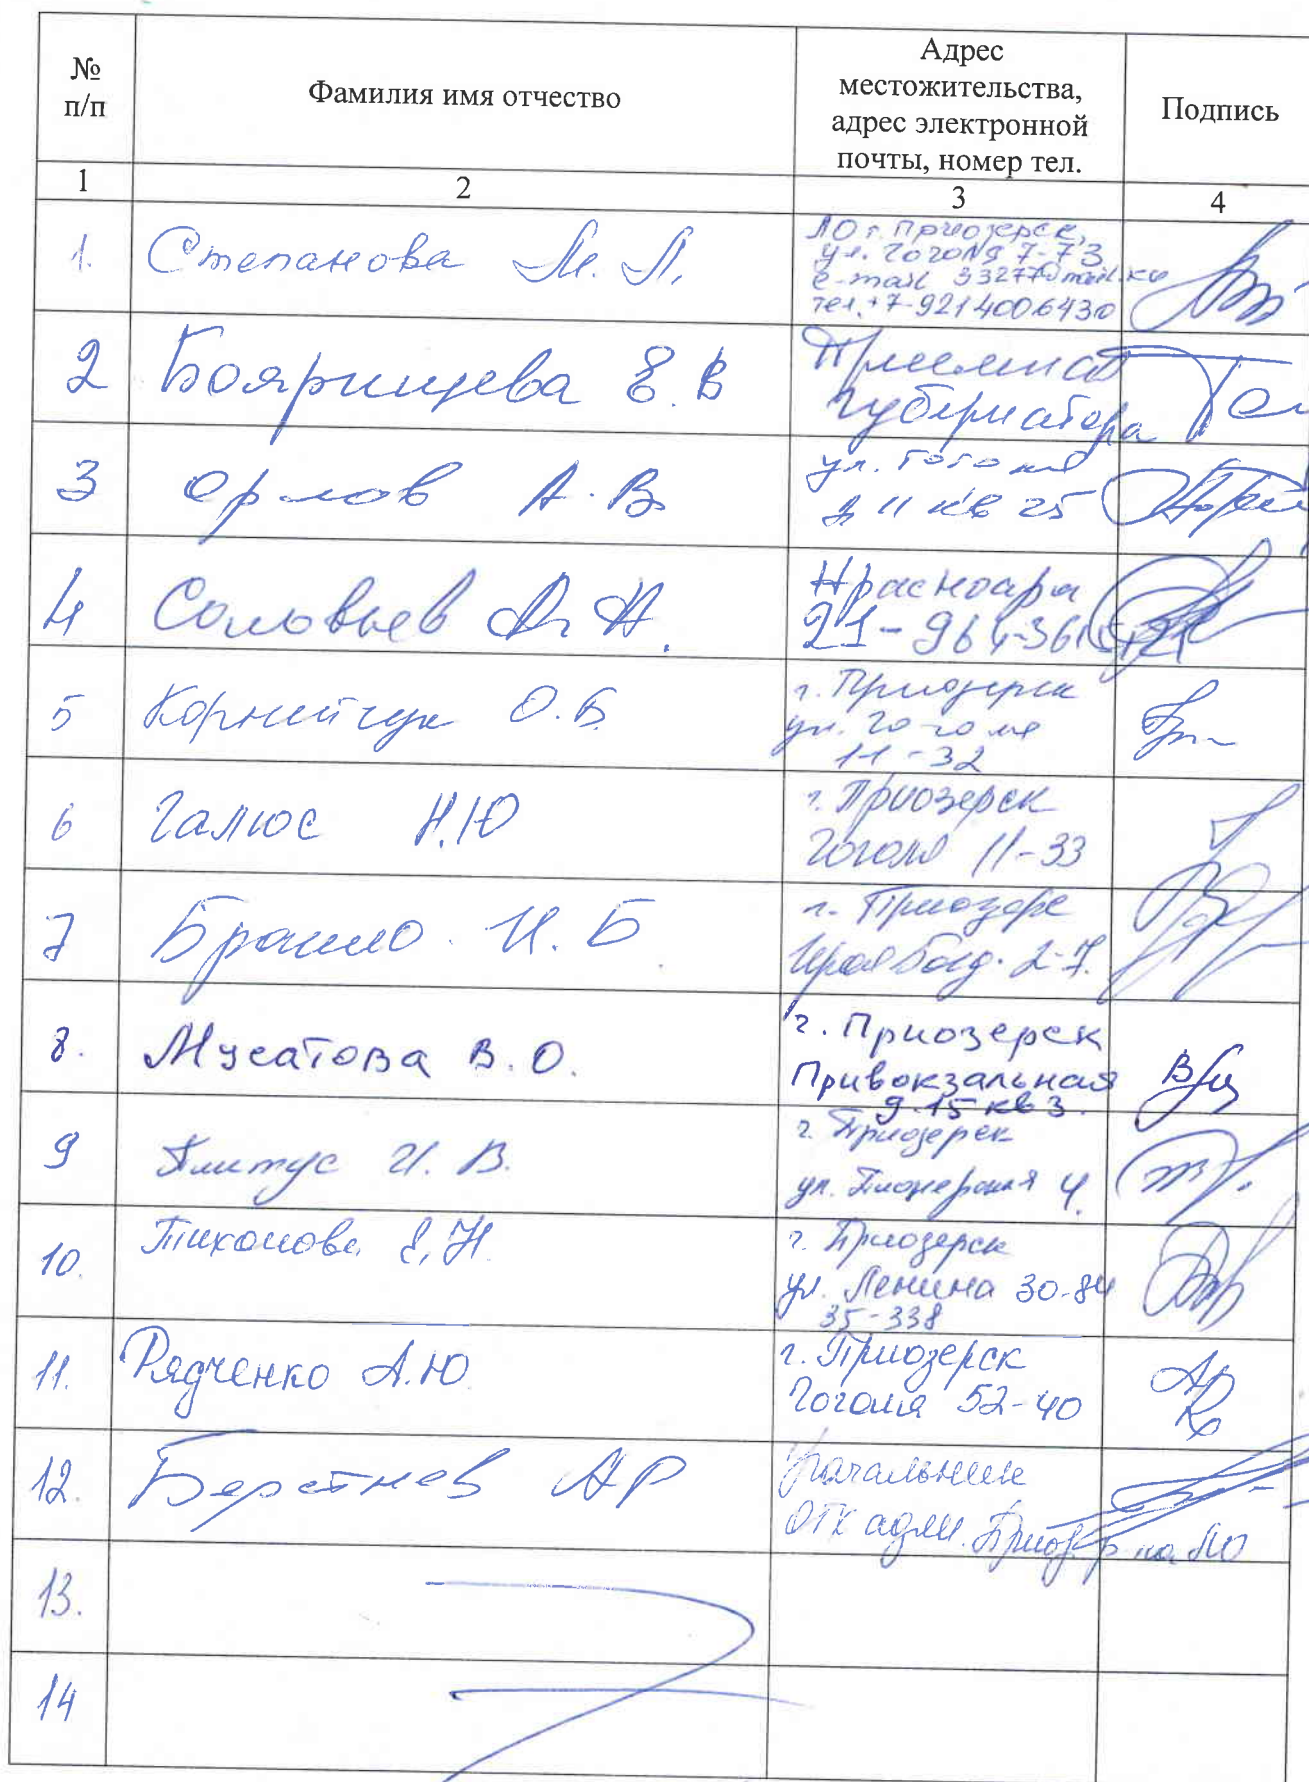 №
п/п
Фамилия имя отчество
Адрес
местожительства,
адрес электронной
почты, номер тел.
Подпись
1
2
3
4
1. Степанова М. Л.
ЛО г. Приозерск,
ул. Гоголя 7-73
e-mail 33277@mail.ru
тел. +7-9214006430
2 Бояринцева Е. В
Приемная
Губернатора
3 Орлов А. В
ул. Гоголя
д 11 кв 25
4 Соловьев А. Н.
21-964-361
5 Корнийчук О. Б.
г. Приозерск
ул. Гоголя
11-32
6 Галюс Н.Ю
г. Приозерск
Гоголя 11-33
7 И. Б
г. Приозерс
2-7.
8. Мусатова В. О.
г. Приозерск
Привокзальная
д. 15 кв 3.
9 И. В.
г. Приозерск
ул. Пионерская 4.
10. Тихонова Е. Н.
г. Приозерск
ул. Ленина 30-84
35-338
11. Рядченко А.Ю
г. Приозерск
Гоголя 52-40
12. Берстнев АР
Начальник
адм. Приоз. р-на ЛО
13.
14